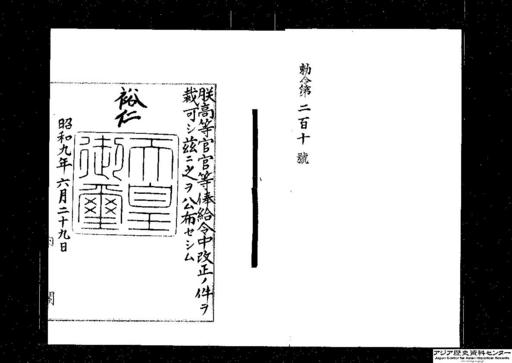 勅令第二百十號
朕高等官官等俸給令中改正ノ件ヲ
裁可シ茲ニ之ヲ公布セシム
裕仁
天皇
御璽
昭和九年六月二十九日
内閣
アジア歴史資料センター
Japan Center for Asian Historical Records